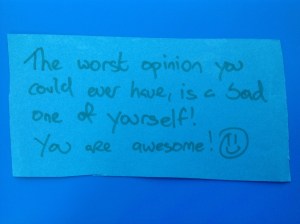 The worst opinion you
could ever have, is a bad
one of yourself!
You are awesome!